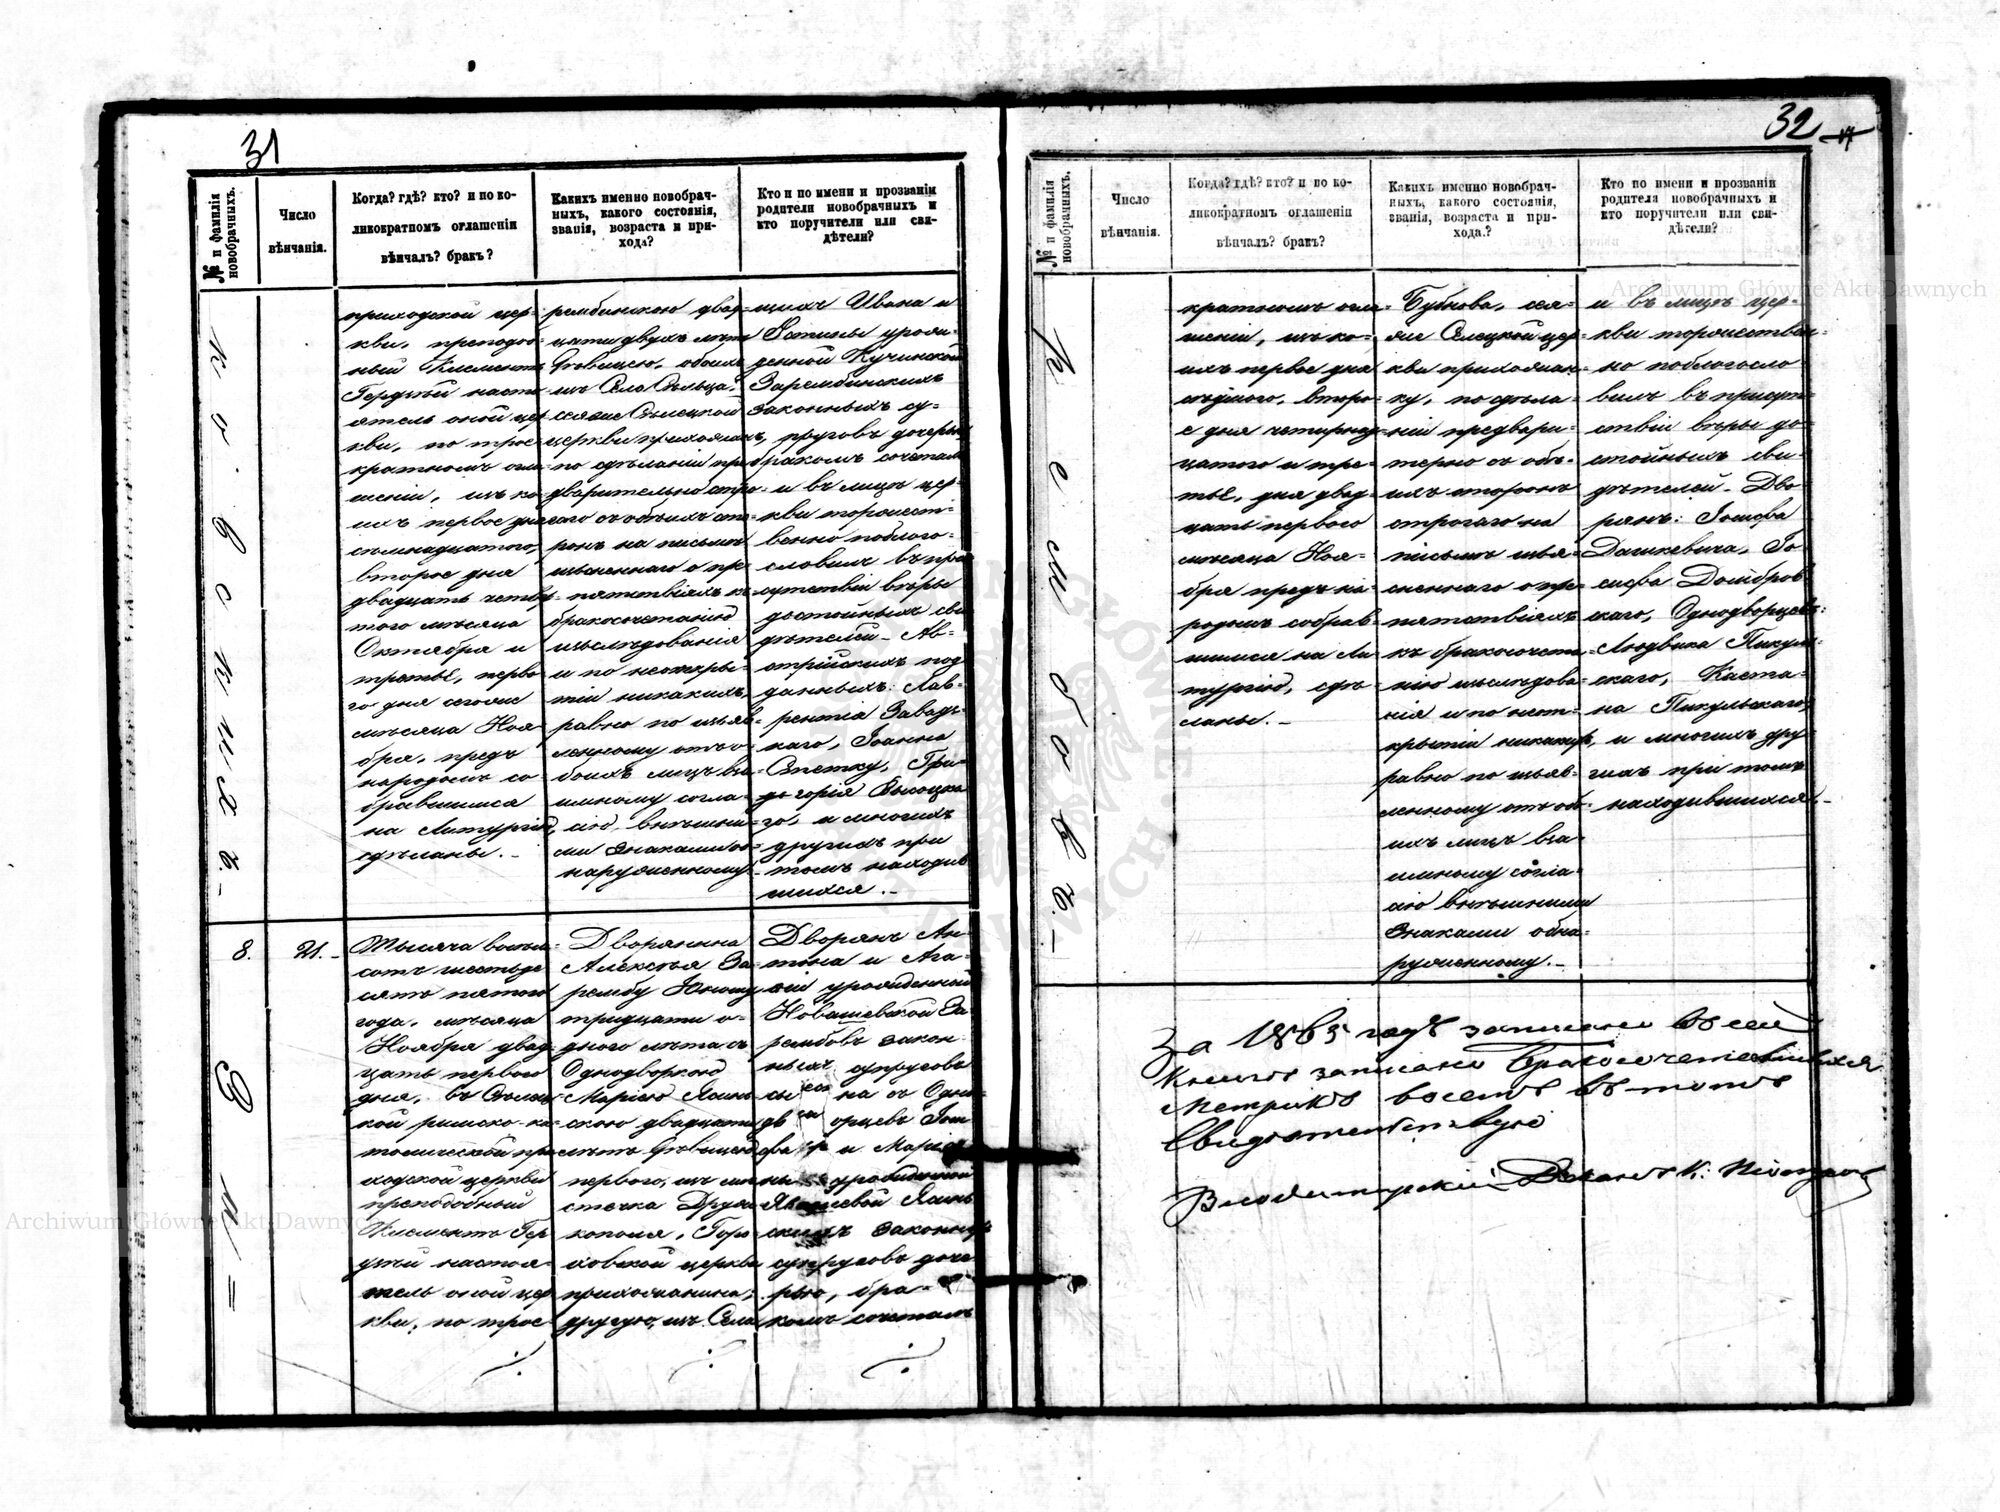 31
№ и фамилія новобрачныхъ.
Число
вѣнчанія.
Когда? гдѣ? кто? и по ко-
ликократномъ оглашеніи
вѣнчалъ? бракъ?
Какихъ именно новобрач-
ныхъ, какого состоянія,
званія, возраста и при-
хода?
Кто и по имени и прозваніи
родители новобрачныхъ и
кто поручители или сви-
дѣтели?
приходской цер-
кви, преподоб-
ный Климентъ
Гердзѣй насто-
ятель оной цер-
кви, по трое-
кратномъ огла-
шеніи, изъ ко-
ихъ первое дня
семнадцатого,
второе дня
двадцать четвер-
того мѣсяца
Октября и
третьё, перво-
го дня
мѣсяца Ноя-
бря, предъ
народомъ со-
бравшимся
на Литургію,
сдѣланы.-
рембинскою двад-
цати двухъ лѣтъ
дѣвицею, обоихъ
изъ Села Сѣльца,
Сѣлецкой
церкви прихожанъ,
по сдѣланіи пре-
дварительно стро-
гаго съ обѣихъ сто-
ронъ на письмѣ
изъясненнаго о пре-
пятствіяхъ къ
бракосочетанію
изслѣдованія
и по неоткры-
тіи никакихъ,
равно по изъяв-
ленному отъ о-
боихъ лицъ вза-
имному согла-
сію, внѣшни-
ми знаками об-
наруженному
Ивана и
Юстины урож-
денной Кучинской
Зарембинскихъ
законныхъ су-
пруговъ дочерью
бракомъ сочеталъ
и въ лицѣ цер-
кви торжест-
венно поблаго-
словилъ въ при-
сутствіи вѣры
достойныхъ сви-
дѣтелей - Ав-
стрійскихъ под-
данныхъ: Лав-
рентія Завадз-
каго, Іоанна
Гри-
горія Высоцка-
го, и многихъ
другихъ при
томъ находив-
шихся.-
8.
21.-
Тысяча восемь-
сотъ шестьде-
сятъ пятого
года, мѣсяца
Ноября двад-
цать первого
дня, въ Сѣлец-
кой римско-ка-
толической при-
ходской церкви
преподобный
Климентъ Гер-
дзѣй настоя-
тель оной цер-
кви, по трое-
Дворянина
Алексѣя За-
рембу Юношу
тридцати о-
дного лѣта съ
Однодворкою
Маріею Ясин-
скою двадцати
лѣтъ дѣвицею
первого, изъ мѣ-
стечка Друж-
кополя, Горо-
ховской церкви
прихожанина;
другую, изъ Села
Дворянъ Ан-
тона и Ага-
ѳіи урожденной
Новашевской За-
рембовъ закон-
ныхъ супруговъ
на съ Одно-
дворцевъ Іоси-
фа и Маріан-
ны урожденной
Ясин-
скихъ законныхъ
супруговъ доче-
рью, бра-
комъ сочеталъ
32
№ и фамилія новобрачныхъ.
Число
вѣнчанія.
Когда? гдѣ? кто? и по ко-
ликократномъ оглашеніи
вѣнчалъ? бракъ?
Какихъ именно новобрач-
ныхъ, какого состоянія,
званія, возраста и при-
хода.?
Кто по имени и прозваніи
родителя новобрачныхъ и
кто поручители или сви-
дѣтели?
кратномъ огла-
шеніи, изъ ко-
ихъ первое дня
седьмого, второ-
е дня четырнад-
цатого и тре-
тьё, дня двад-
цать первого
мѣсяца Ноя-
бря предъ на-
родомъ собрав-
шимся на Ли-
тургію, сдѣ-
ланы.-
Бубнова,
Сѣлецкой цер-
кви прихожан-
ку, по сдѣла-
ніи предвари-
терно съ обѣ-
ихъ сторонъ
строгаго на
письмѣ изъя-
сненнаго о пре-
пятствіяхъ
къ бракосочета-
нію изслѣдова-
нія и по неот-
крытіи никакихъ,
равно по изъяв-
ленному отъ обо-
ихъ лицъ вза-
имному согла-
сію внѣшними
знаками обна-
руженному.-
и въ лицѣ цер-
кви торжествен-
но поблагосло-
вилъ въ присут-
ствіи вѣры до-
стойныхъ сви-
дѣтелей - Дво-
рянъ: Іосифа
Дашкевича, Іо-
сифа Домбров-
скаго, Однодворцевъ:
Людвика Пикуль-
скаго, Каета-
на Пикульскаго,
и многихъ дру-
гихъ при томъ
находившихся.-
За 1865 годъ записано въ сей
Книгѣ записано бракосочетавшихся
Метрикъ восемь въ томъ
Свидѣтельствую
Владимірскій Деканъ К.